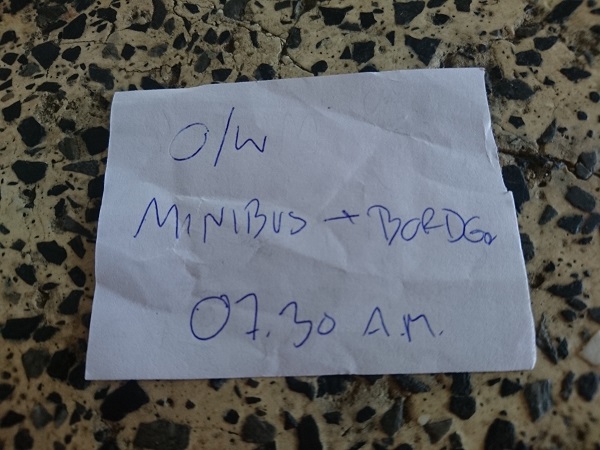 O/W
MINIBUS → BORDER
07.30 A.M.